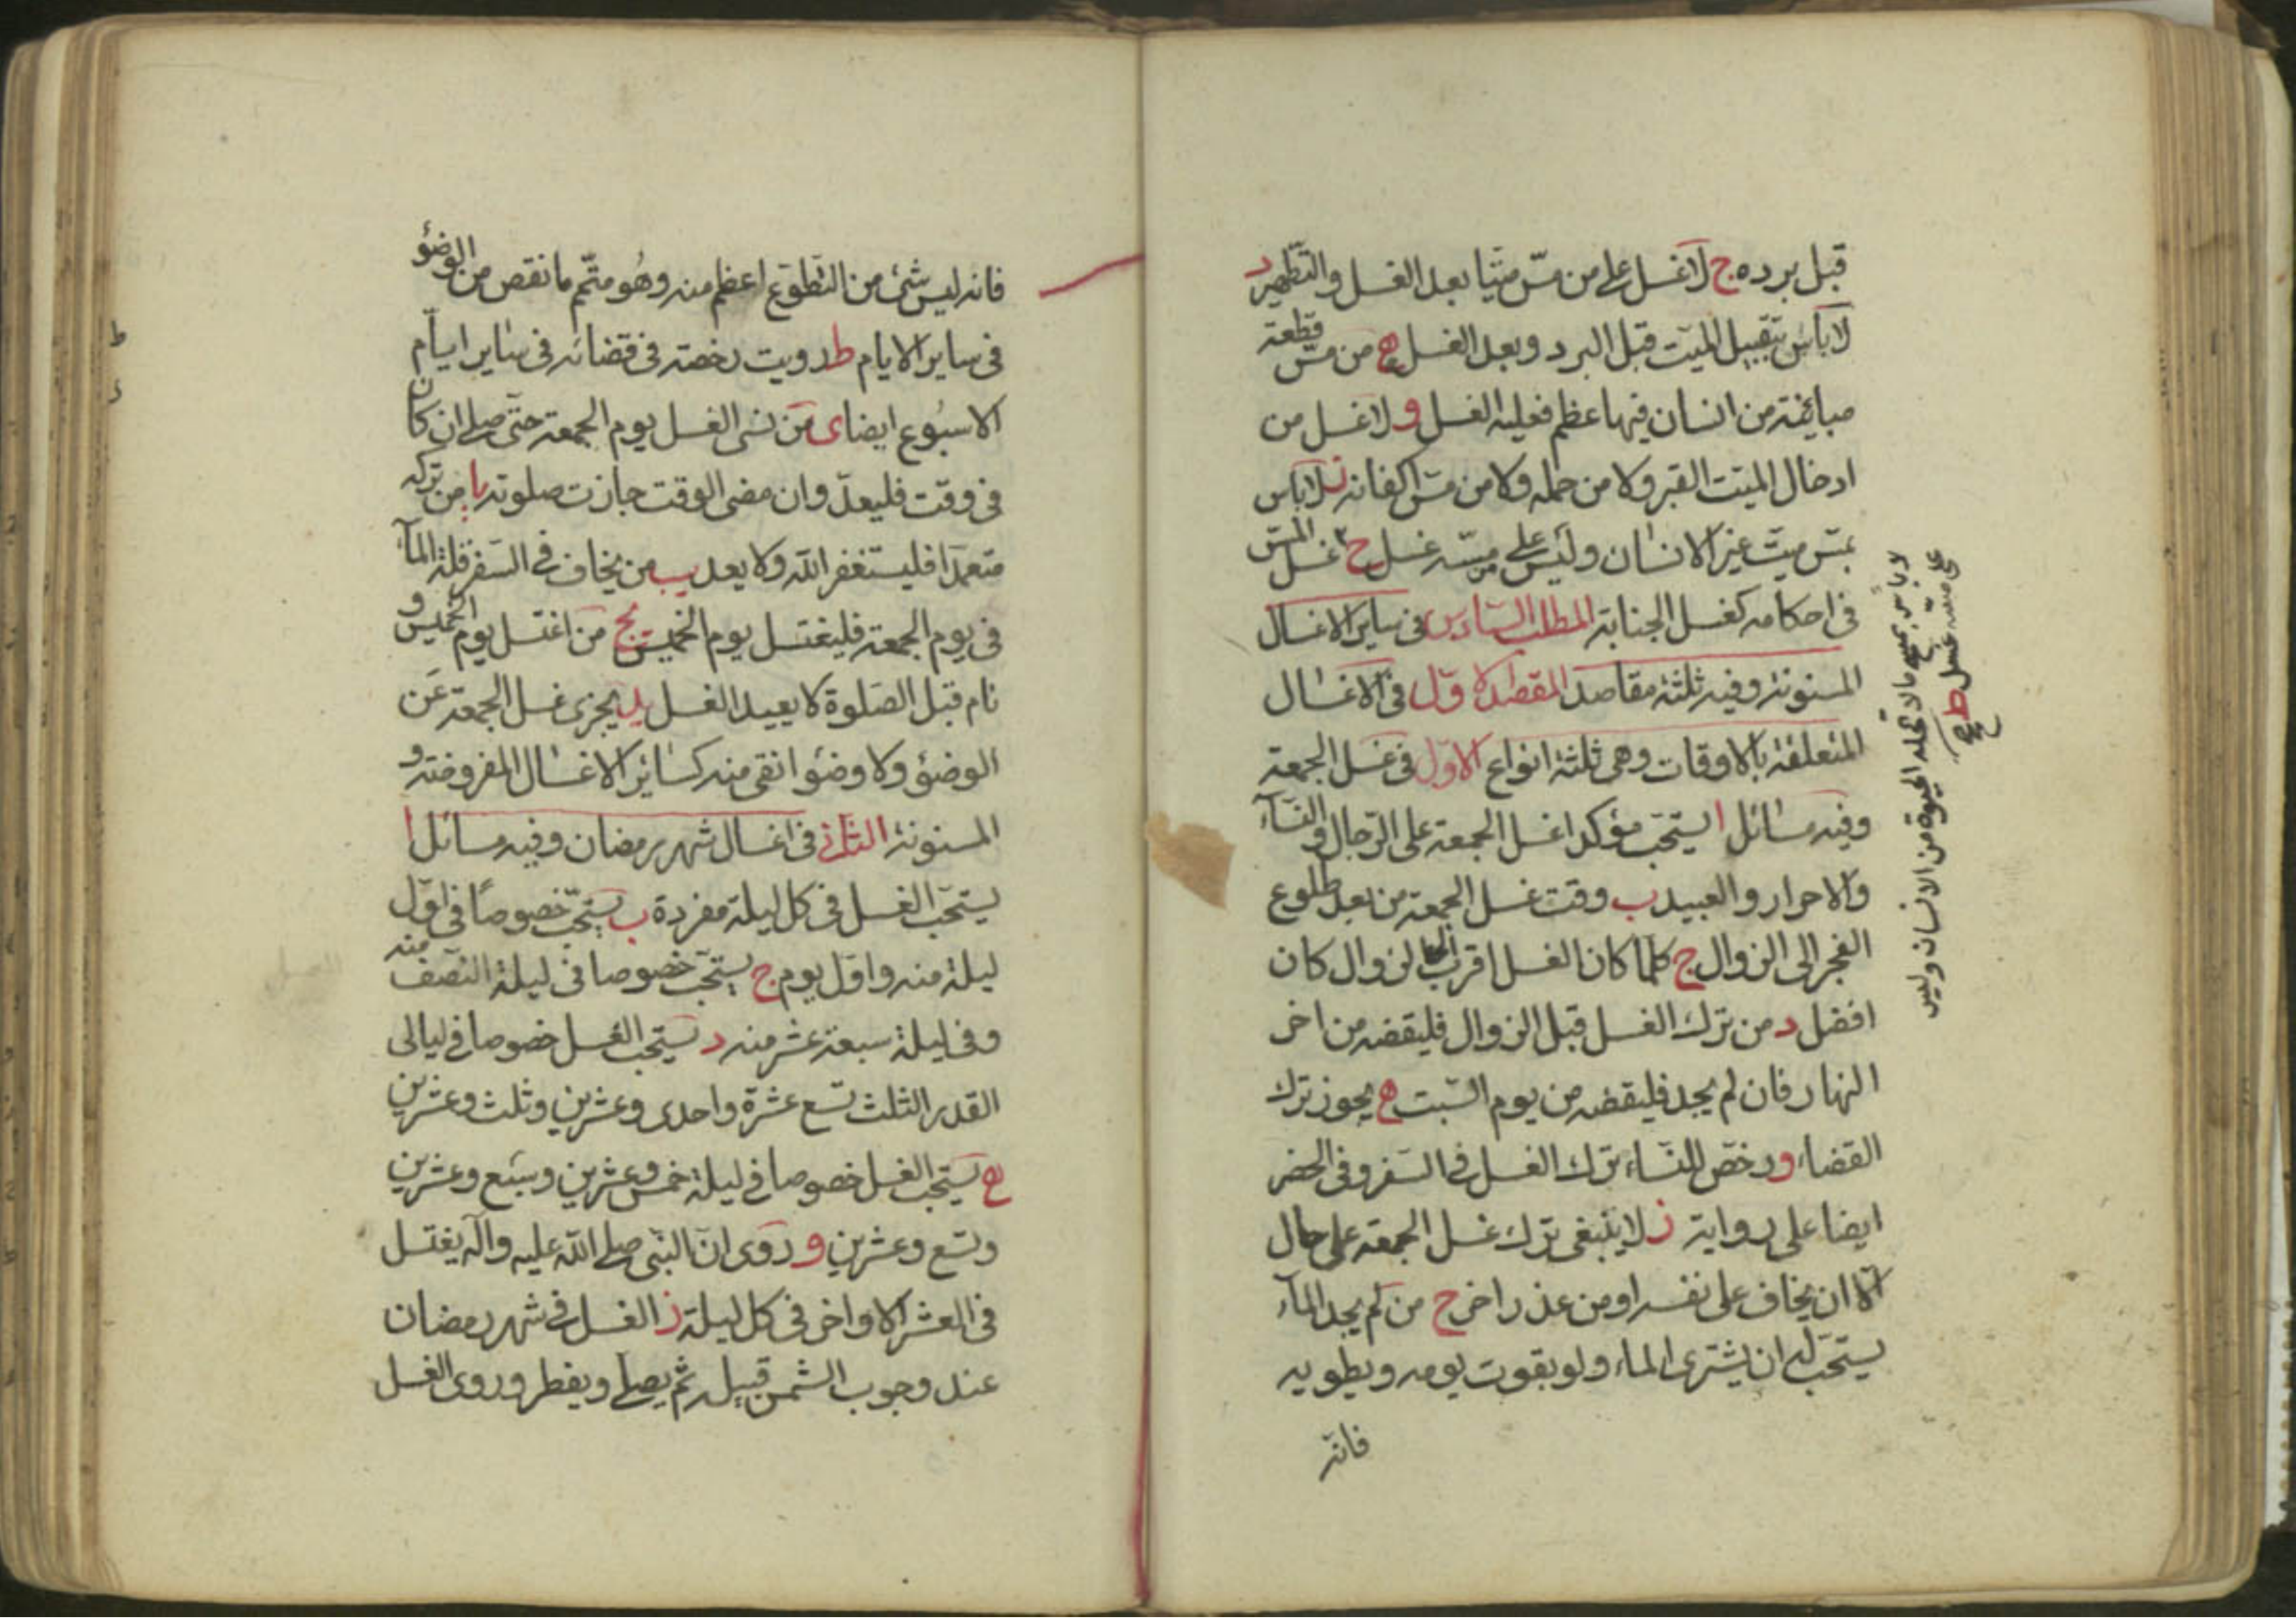 قبل برده ج لا غسل على من مسّ ميّتا بعد الغسل والتّطهير د
لا بأس بتقبيل الميّت قبل البرد وبعد الغسل ه من مسّ قطعة
مباينة من انسان فيها عظم فعليه الغسل و لا غسل من
ادخال الميّت القبر ولا من حمله ولا من مسّ اكفانه ز لا بأس
بمسّ ميّت غير الانسان وليس على من مسّه غسل ح غسل المسّ
فى احكامه كغسل الجنابة المطلب السّادس فى ساير الاغسال
المسنونة وفيه ثلثة مقاصد المقصد الاوّل فى الاغسال
المتعلقة بالاوقات وهى ثلثة انواع الاوّل فى غسل الجمعة
وفيه مسائل ا يستحبّ مؤكدا غسل الجمعة على الرّجال والنّسآء
والاحرار والعبيد ب وقت غسل الجمعة من بعد طلوع
الفجر الى الزوال ج كلما كان الغسل اقرب الى الزوال كان
افضل د من ترك الغسل قبل الزوال فليقضه من اخر
النهار فان لم يجد فليقضه من يوم السّبت ه يجوز ترك
القضاء و رخّص للنّساء ترك الغسل فى السّفر وفى الحضر
ايضا على رواية ز لا ينبغى ترك غسل الجمعة على حال
الّا ان يخاف على نفسه او من عذر اخر ح من لم يجد المآء
يستحبّ له ان يشترى الماء ولو بقوت يومه ويطويه
فانّه
لا بأس بمسّ ما لا تحله الحيوة من الانسان وليس
على مسه غسل ط صح
فانه ليس شئ من التّطوّع اعظم منه وهو متمّم ما نقص من الوضؤ
فى ساير الايام ط رويت رخصة فى قضائه فى ساير ايّام
الاسبوع ايضا ى من نسى الغسل يوم الجمعة حتّى صلى ان كان
فى وقت فليعد وان مضى الوقت جازت صلوته يا من تركه
متعمّدا فليستغفر الله ولا يعد يب من يخاف فى السّفر قلة المآء
فى يوم الجمعة فليغتسل يوم الخميس يج من اغتسل يوم الخميس و
نام قبل الصّلوة لا يعيد الغسل يد يجزى غسل الجمعة عن
الوضؤ ولا وضؤ انقى منه كسائر الاغسال المفروضة و
المسنونة الثانى فى اغسال شهر رمضان وفيه مسائل ا
يستحبّ الغسل فى كل ليلة مفردة ب يستحبّ خصوصًا فى اوّل
ليلة منه واوّل يوم ج يستحبّ خصوصا فى ليلة النّصف منه
وفى ليلة سبعة عشر منه د يستحبّ الغسل خصوصا فى ليالى
القدر الثلث تسع عشرة واحدى وعشرين وثلث وعشرين
ه يستحبّ الغسل خصوصا فى ليلة خمس وعشرين وسبع وعشرين
وتسع وعشرين و روى انّ النّبى صلى الله عليه وآله يغتسل
فى العشر الاواخر فى كل ليلة ز الغسل فى شهر رمضان
عند وجوب الشّمس قبيله ثمّ يصلّى ويفطر وروى الغسل